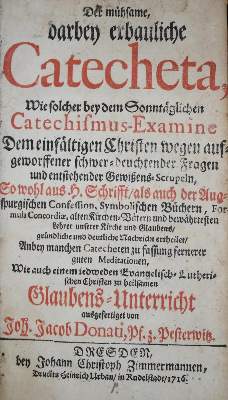 Der mühsame,
darbey erbauliche
Catecheta,
Wie solcher bey dem Sonntäglichen
Catechismus-Examine
Dem einfältigen Christen wegen auf-
geworffener schwer-deuchtender Fragen
und entstehender Gewißens-Scrupeln,
So wohl aus H. Schrifft/ als auch der Aug-
spurgischen Confession, Symbolischen Büchern, For-
mula Concordiæ, alten Kirchen-Vätern und bewährtesten
Lehrer unserer Kirche und Glaubens/
gründliche und deutliche Nachricht ertheilet/
Anbey manchen Catecheten zu fassung fernerer
guten Meditationen,
Wie auch einem iedweden Evangelisch-Lutheri-
schen Christen zu heilsamen
Glaubens-Unterricht
ausgefertiget von
Joh. Jacob Donati, Pf. z. Pesterwitz.
DRESDEN,
bey Johann Christoph Zimmermannen,
Druckts Heinrich Urban/ in Rudelstadt/ 1716.